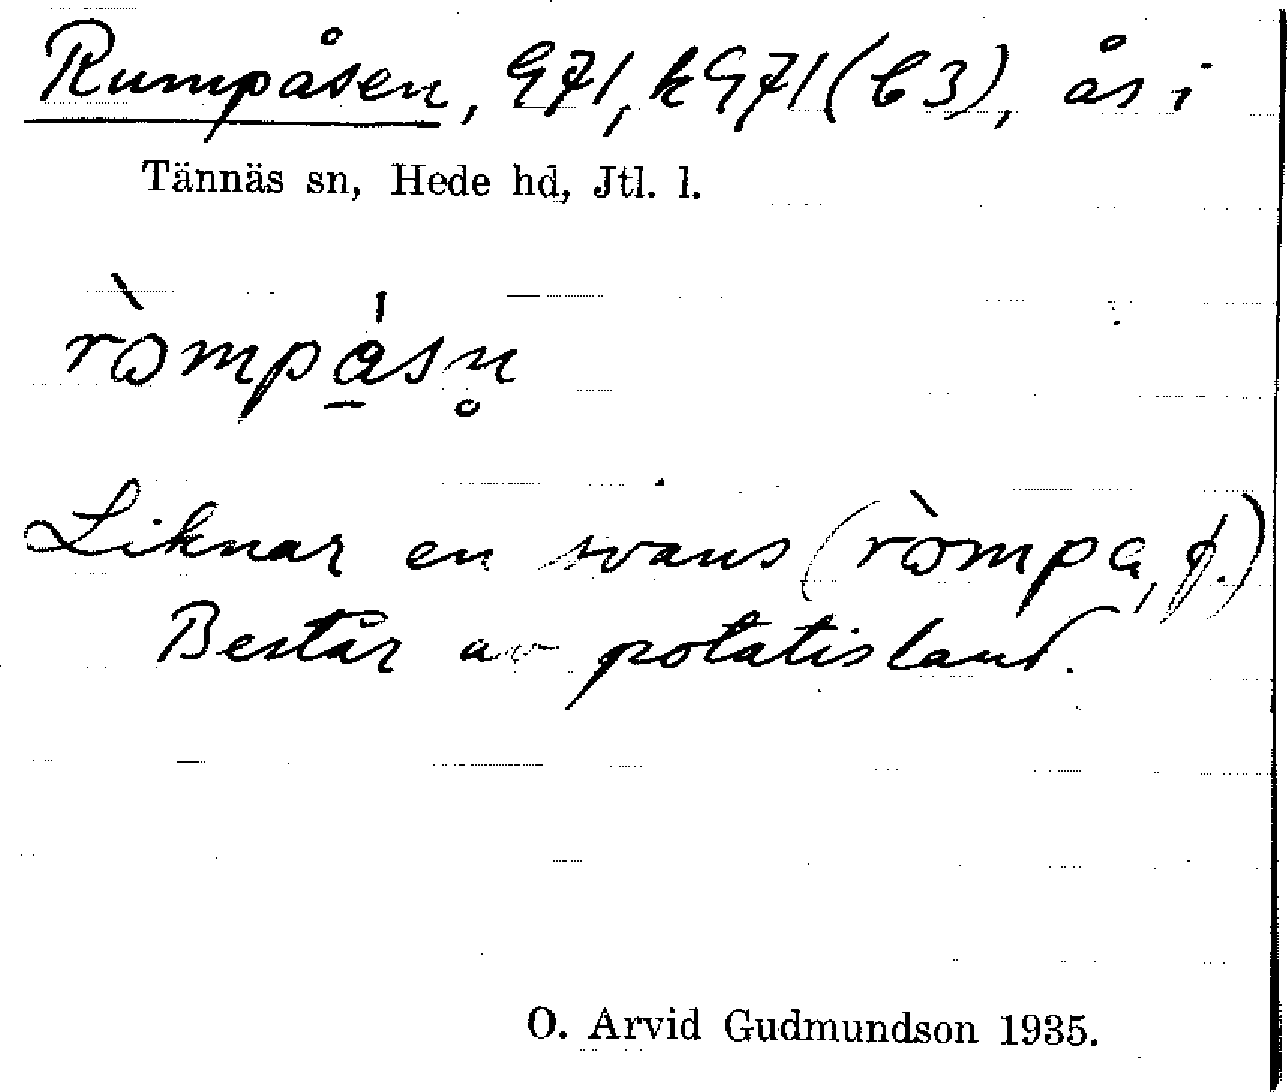 Rumpåsen, 971, k971 (C3), ås i
Tännäs sn, Hede hd, Jtl. l.
ròmpa̱̍sn̥
Liknar en svans (ròmpa, f.)
Består av potatisland.
O. Arvid Gudmundson 1935.